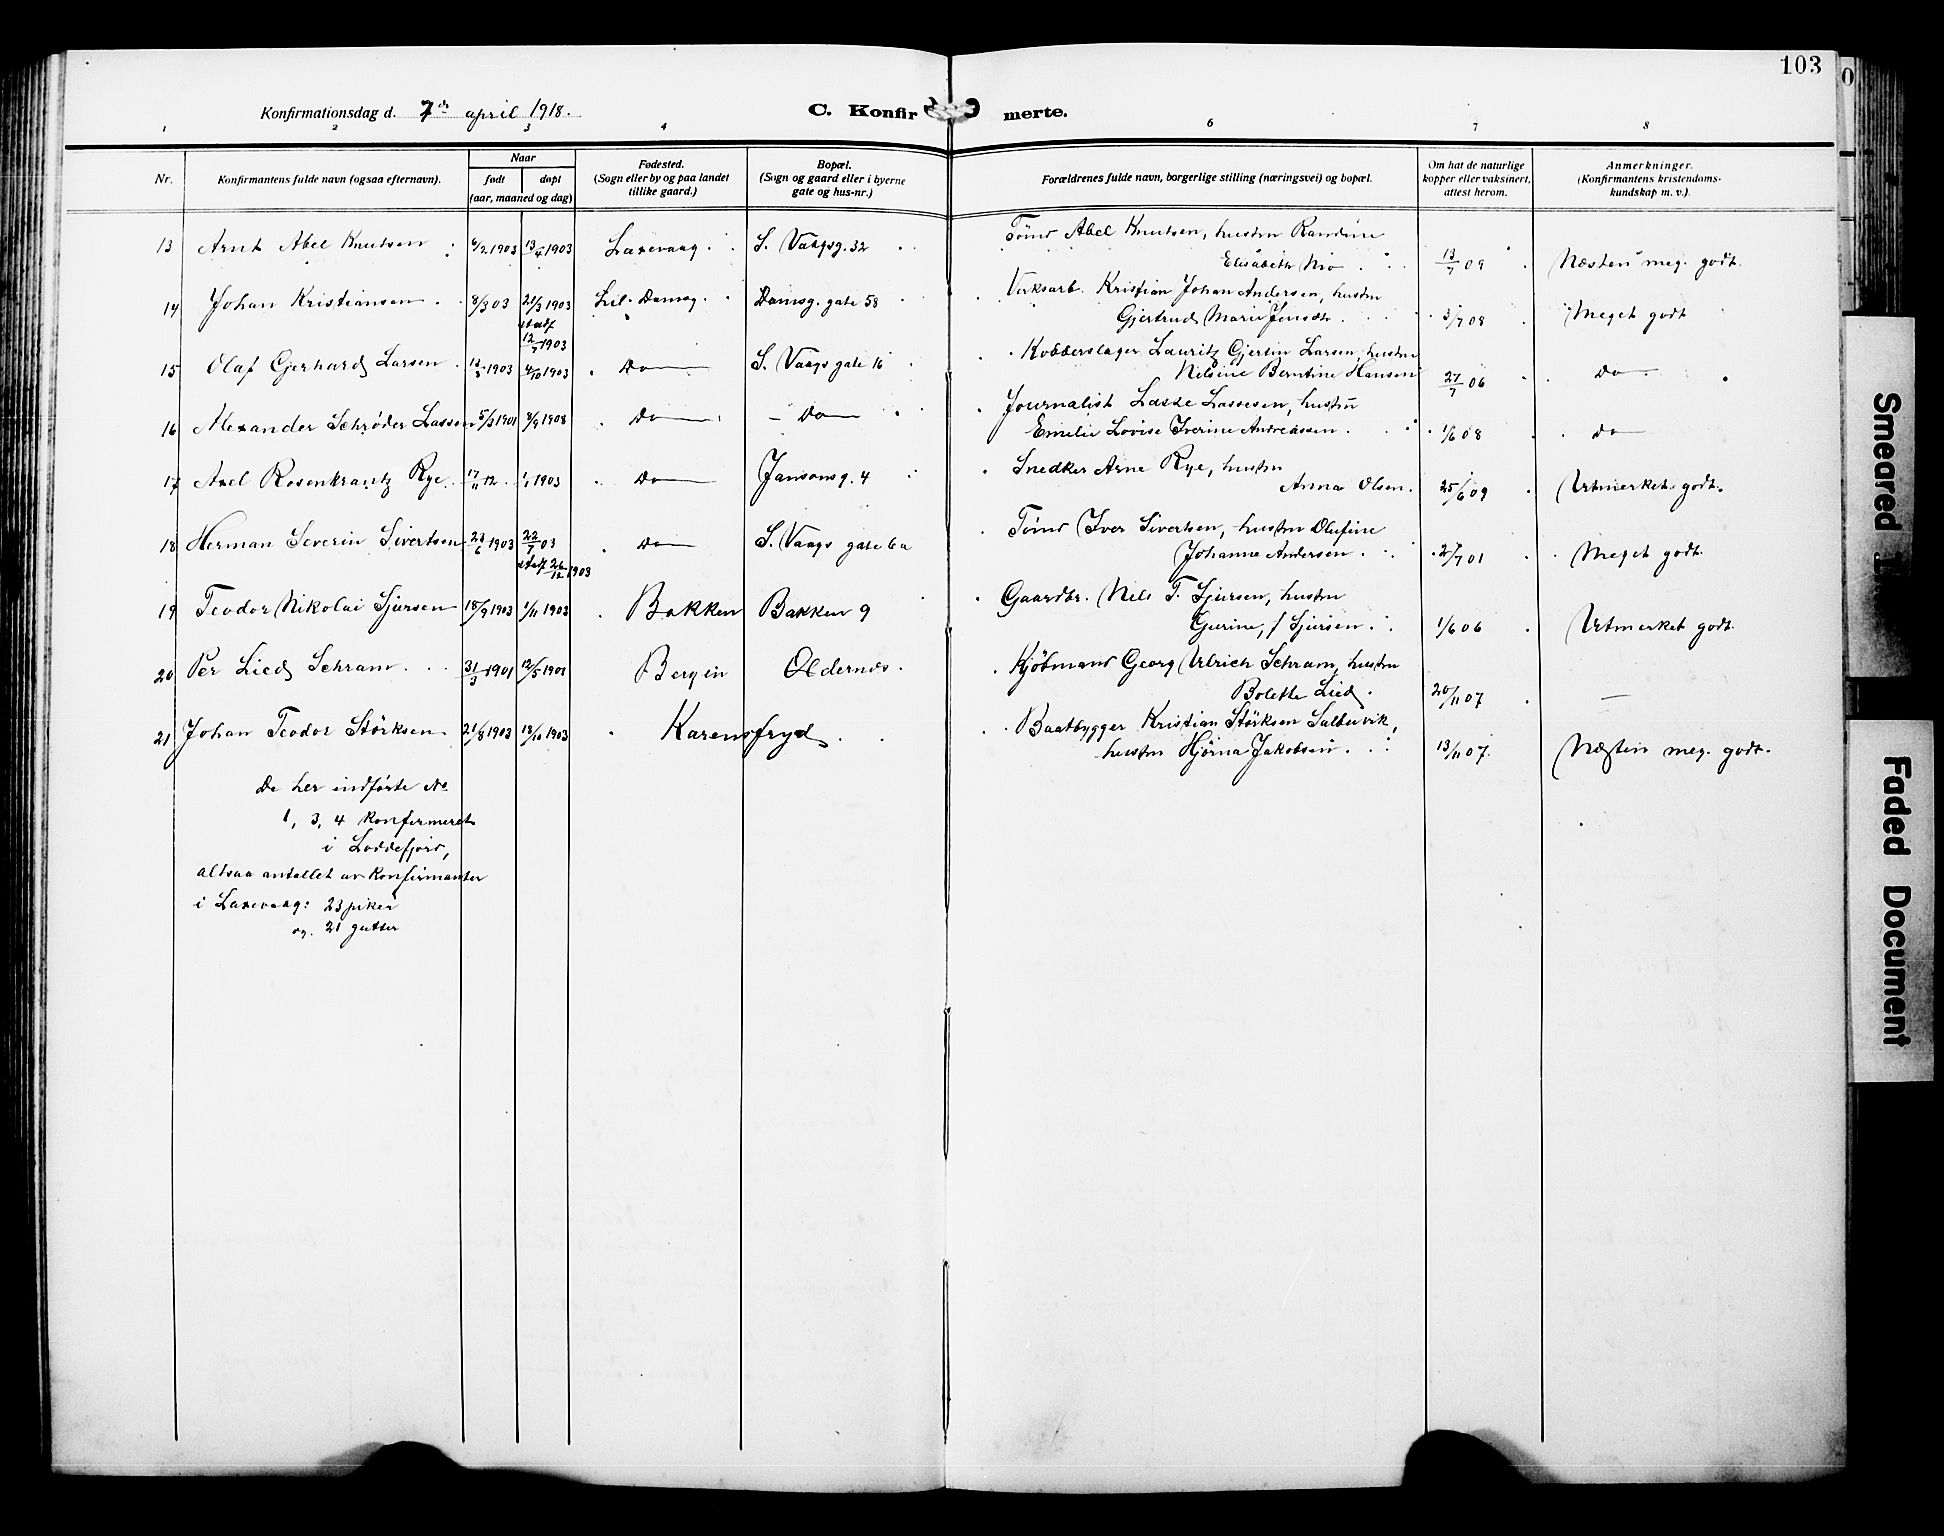 103
Konfirmationsdag d. 7de april 1918.
C. Konfirmerte.
1 2 3 4 6 7 8
Nr.
Konfirmantens fulde navn (ogsaa efternavn).
Naar
født døpt
(aar, maaned og dag)
Fødested.
(Sogn eller by og paa landet
tillike gaard.)
Bopæl.
(Sogn og gaard eller i byerne
gate og hus-nr.)
Forældrenes fulde navn, borgerlige stilling (næringsvei) og bopæl.
Om hat de naturlige
kopper eller vaksinert,
attest herom.
Anmerkninger.
(Konfirmantens kristendoms-
kundskap m. v.).
13 Arnt Abel Knutsen 6/2 1903 13/4 1903 Laxevaag S. Vaagsg. 32 Tømr Abel Knutsen, hustru Randine
Elisabeth Mo 13/7 09 Næsten meg. godt.
14 Johan Kristiansen 8/3 03 21/3 1903 Lil. Damsg. Damsg. gate 58 Verksarb. Kristian Johan Andersen, hustru
stadf 12/7 1903 Gjertrud Marie Jensdtr 3/7 08 Meget godt
15 Olaf Gerhard Larsen 13/3 1903 4/10 1903 Do S. Vaags gate 16 Kobberslager Lauritz Gjertin Larsen, hustru
Nilsine Berntine Hansen 27/7 06 do
16 Alexander Schrøder Lassen 5/3 1901 8/9 1908 Do Do Journalist Lasse Lassesen, hustru
Emelie Lovise Iverine Andreassen 1/6 08 do
17 Axel Rosenkrantz Rye 17/11 12 1/1 1903 Do Jansonsg. 4 Snedker Arne Rye, hustru
Anna Olsen. 25/6 09 Utmerket godt.
18 Herman Severin Sivertsen 23/6 1903 22/7 03 Do S. Vaags gate 6a Tømr Iver Sivertsen, hustru Olufine
stadf 26/12 1903 Johanne Andersen 2/7 01 Meget godt.
19 Teodor Nikolai Sjursen 18/9 1903 1/11 1903 Bakken Bakken 9 Gaardbr. Nils T. Sjursen, hustru
Gurine, f Sjursen 1/6 06 Utmerket godt.
20 Per Lied Schram 31/3 1901 12/5 1901 Bergen Oldernes Kjøbmand Georg Ulrich Schram, hustru
Bolette Lied. 20/11 07 —
21 Johan Teodor Størksen 21/8 1903 18/10 1903 Karensfryd Baatbygger Kristian Størksen Salbuvik,
hustru Hjørna Jakobsen 13/11 07. Næsten meg. godt.
De her indførte No
1, 3, 4 konfirmeret
i Loddefjord,
altsaa antallet av konfirmanter
i Laxevaag: 23 piker
og 21 gutter
Smeared
Faded Document